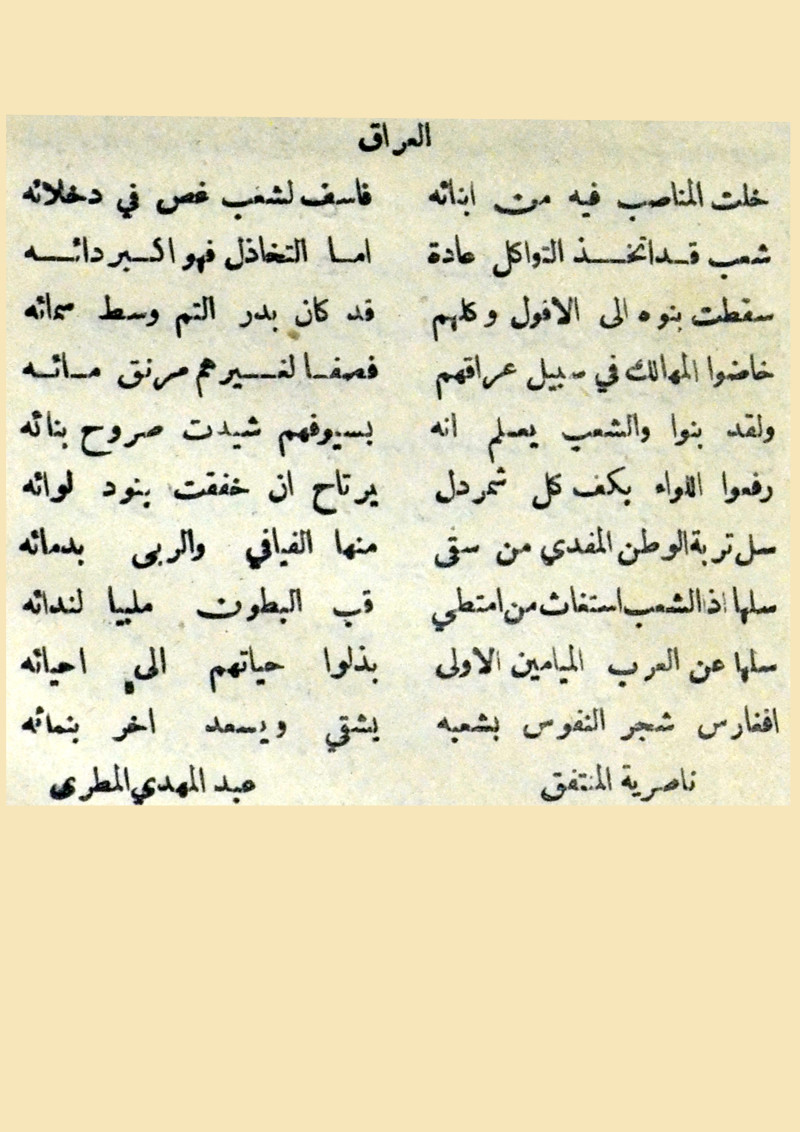 العراق
خلت المناصب فيه من ابنائه فاسف لشعب غص في دخلائه
شعب قد اتخذ التواكل عادة اما التخاذل فهو اكبر دائه
سقطت بنوه الى الافول وكلهم قد كان بدر التم وسط سمائه
خاضوا المهالك في سبيل عراقهم فصفا لغيرهم مرنق مائه
ولقد بنوا والشعب يعلم انه بسيوفهم شيدت صروح بنائه
رفعوا اللواء بكف كل شمردل يرتاح ان خفقت بنود لوائه
سل تربة الوطن المفدي من سقى منها الفيافي والربى بدمائه
سلها اذا الشعب استغاث من امتطي قب البطون ملبيا لندائه
سلها عن العرب الميامين الاولى بذلوا حياتهم الى احيائه
افغارس شجر النفوس بشعبه يشقي ويسعد اخر بنمائه
ناصرية المنتفق عبد المهدي المطري